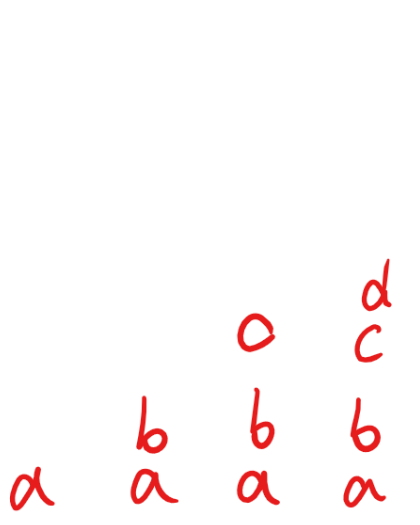 d
o c
b b b
a a a a